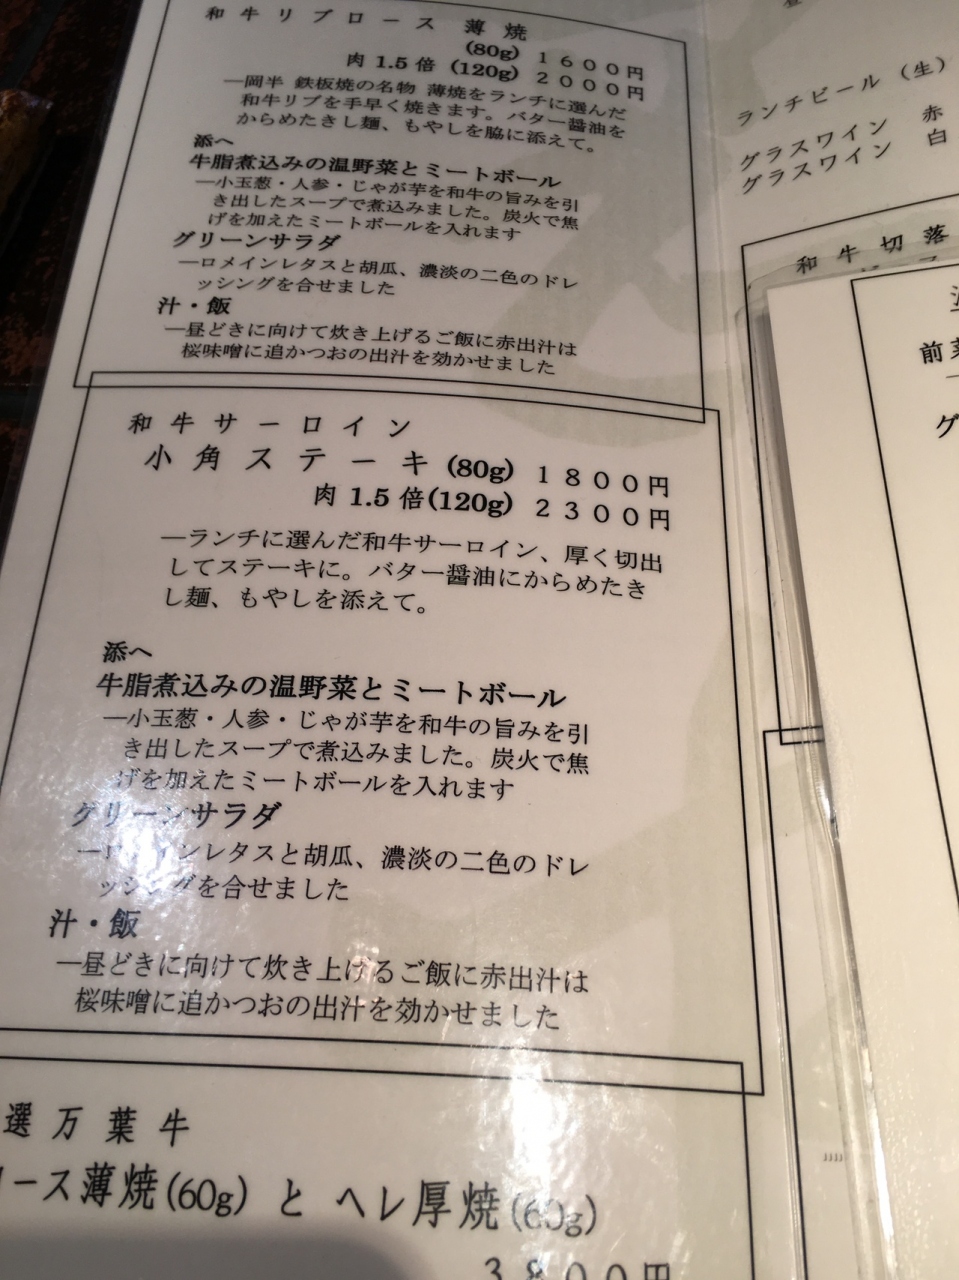 和牛リブロース 薄焼
(80g) 1600円
肉1.5倍 (120g) 2000円
―岡半 鉄板焼の名物 薄焼をランチに選んだ
和牛リブを手早く焼きます。バター醤油を
からめたきし麺、もやしを脇に添えて。
添へ
牛脂煮込みの温野菜とミートボール
―小玉葱・人参・じゃが芋を和牛の旨みを引
き出したスープで煮込みました。炭火で焦
げを加えたミートボールを入れます
グリーンサラダ
―ロメインレタスと胡瓜、濃淡の二色のドレ
ッシングを合せました
汁・飯
―昼どきに向けて炊き上げるご飯に赤出汁は
桜味噌に追かつおの出汁を効かせました
和牛サーロイン
小角ステーキ (80g) 1800円
肉1.5倍(120g) 2300円
―ランチに選んだ和牛サーロイン、厚く切出
してステーキに。バター醤油にからめたき
し麺、もやしを添えて。
添へ
牛脂煮込みの温野菜とミートボール
―小玉葱・人参・じゃが芋を和牛の旨みを引
き出したスープで煮込みました。炭火で焦
げを加えたミートボールを入れます
グリーンサラダ
―ロメインレタスと胡瓜、濃淡の二色のドレ
ッシングを合せました
汁・飯
―昼どきに向けて炊き上げるご飯に赤出汁は
桜味噌に追かつおの出汁を効かせました
選万葉牛
ース薄焼(60g) と ヘレ厚焼(60g)
3800円
ランチビール (生)
グラスワイン 赤
グラスワイン 白
和牛切落
前菜
グ